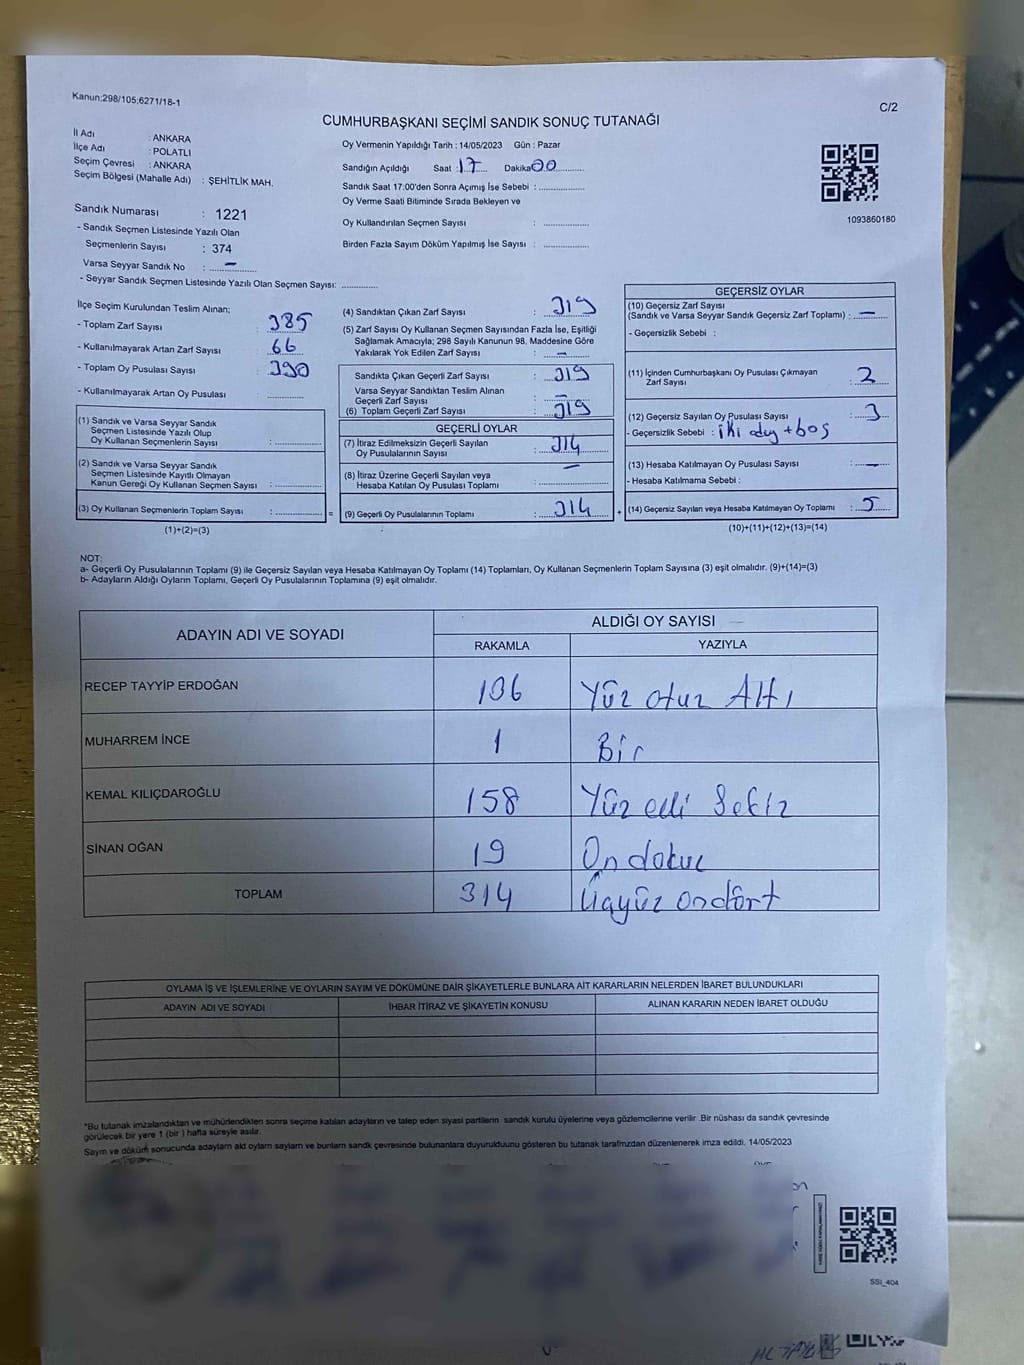 Kanun:298/105;6271/18-1
C/2
CUMHURBAŞKANI SEÇİMİ SANDIK SONUÇ TUTANAĞI
İl Adı : ANKARA
İlçe Adı : POLATLI
Seçim Çevresi : ANKARA
Seçim Bölgesi (Mahalle Adı) : ŞEHİTLİK MAH.
Sandık Numarası : 1221
- Sandık Seçmen Listesinde Yazılı Olan
Seçmenlerin Sayısı : 374
Varsa Seyyar Sandık No : –
- Seyyar Sandık Seçmen Listesinde Yazılı Olan Seçmen Sayısı:
Oy Vermenin Yapıldığı Tarih : 14/05/2023 Gün : Pazar
Sandığın Açıldığı Saat : 17 Dakika 00
Sandık Saat 17:00'den Sonra Açımış İse Sebebi :
Oy Verme Saati Bitiminde Sırada Bekleyen ve
Oy Kullandırılan Seçmen Sayısı :
Birden Fazla Sayım Döküm Yapılmış İse Sayısı :
1093860180
İlçe Seçim Kurulundan Teslim Alınan;
- Toplam Zarf Sayısı : 385
- Kullanılmayarak Artan Zarf Sayısı : 66
- Toplam Oy Pusulası Sayısı : 390
- Kullanılmayarak Artan Oy Pusulası :
(1) Sandık ve Varsa Seyyar Sandık
Seçmen Listesinde Yazılı Olup
Oy Kullanan Seçmenlerin Sayısı :
(2) Sandık ve Varsa Seyyar Sandık
Seçmen Listesinde Kayıtlı Olmayan
Kanun Gereği Oy Kullanan Seçmen Sayısı :
(3) Oy Kullanan Seçmenlerin Toplam Sayısı : =
(1)+(2)=(3)
(4) Sandıktan Çıkan Zarf Sayısı : 319
(5) Zarf Sayısı Oy Kullanan Seçmen Sayısından Fazla İse, Eşitliği
Sağlamak Amacıyla; 298 Sayılı Kanunun 98. Maddesine Göre
Yakılarak Yok Edilen Zarf Sayısı : –
Sandıkta Çıkan Geçerli Zarf Sayısı : 319
Varsa Seyyar Sandıktan Teslim Alınan
Geçerli Zarf Sayısı : –
(6) Toplam Geçerli Zarf Sayısı : 319
GEÇERLİ OYLAR
(7) İtiraz Edilmeksizin Geçerli Sayılan
Oy Pusulalarının Sayısı : 314
(8) İtiraz Üzerine Geçerli Sayılan veya
Hesaba Katılan Oy Pusulası Toplamı : –
(9) Geçerli Oy Pusulalarının Toplamı : 314 +
GEÇERSİZ OYLAR
(10) Geçersiz Zarf Sayısı
(Sandık ve Varsa Seyyar Sandık Geçersiz Zarf Toplamı) : –
- Geçersizlik Sebebi :
(11) İçinden Cumhurbaşkanı Oy Pusulası Çıkmayan
Zarf Sayısı : 2
(12) Geçersiz Sayılan Oy Pusulası Sayısı : 3
- Geçersizlik Sebebi : iki oy + boş
(13) Hesaba Katılmayan Oy Pusulası Sayısı : –
- Hesaba Katılmama Sebebi :
(14) Geçersiz Sayılan veya Hesaba Katılmayan Oy Toplamı : 5
(10)+(11)+(12)+(13)=(14)
NOT:
a- Geçerli Oy Pusulalarının Toplamı (9) ile Geçersiz Sayılan veya Hesaba Katılmayan Oy Toplamı (14) Toplamları, Oy Kullanan Seçmenlerin Toplam Sayısına (3) eşit olmalıdır. (9)+(14)=(3)
b- Adayların Aldığı Oyların Toplamı, Geçerli Oy Pusulalarının Toplamına (9) eşit olmalıdır.
ADAYIN ADI VE SOYADI ALDIĞI OY SAYISI
RAKAMLA YAZIYLA
RECEP TAYYİP ERDOĞAN 136 Yüz otuz Altı
MUHARREM İNCE 1 Bir
KEMAL KILIÇDAROĞLU 158 Yüz elli Sekiz
SİNAN OĞAN 19 On dokuz
TOPLAM 314 Üçyüz ondört
OYLAMA İŞ VE İŞLEMLERİNE VE OYLARIN SAYIM VE DÖKÜMÜNE DAİR ŞİKAYETLERLE BUNLARA AİT KARARLARIN NELERDEN İBARET BULUNDUKLARI
ADAYIN ADI VE SOYADI İHBAR İTİRAZ VE ŞİKAYETİN KONUSU ALINAN KARARIN NEDEN İBARET OLDUĞU
*Bu tutanak imzalandıktan ve mühürlendikten sonra seçime katılan adayların ve talep eden siyasi partilerin sandık kurulu üyelerine veya gözlemcilerine verilir .Bir nüshası da sandık çevresinde
görülecek bir yere 1 (bir ) hafta süreyle asılır.
Sayım ve döküm sonucunda adayların aldı oyların sayların ve bunların sandık çevresinde bulunanlara duyurulduunu gösteren bu tutanak tarafmzdan düzenlenerek imza edildi. 14/05/2023
SSI_404